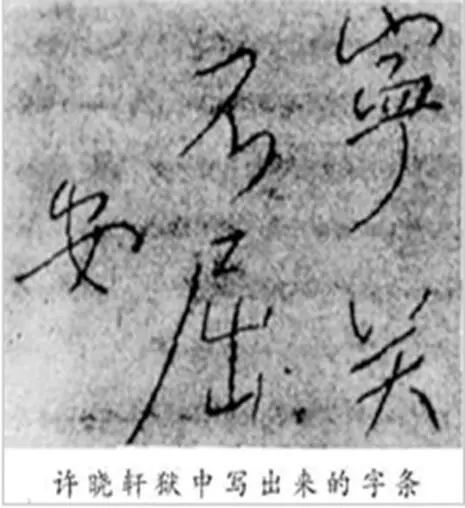 寧关
不屈
安
许晓轩狱中写出来的字条